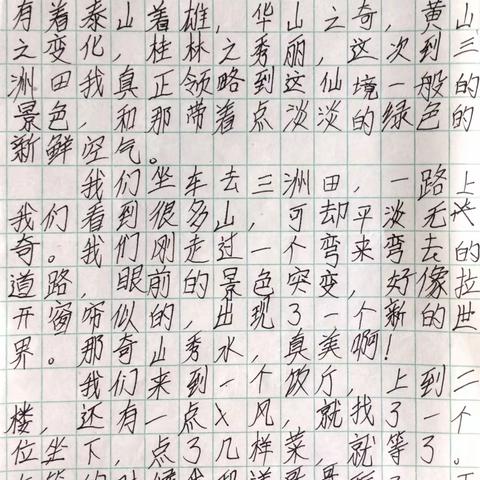 有着泰山着雄，华山之奇，黄山
之变化，桂林之秀丽，这次到三
洲田我真正领略到这仙境一般的
景色，和那带着点淡淡的绿色的
新鲜空气。
我们坐车去三洲田，一路上
我们看到很多山，可却平淡无兴
奇。我们刚走过一个弯来弯去的
道路，眼前的景色突变，好像拉
开窗帘似的，出现了一个新的世
界。那奇山秀水，真美啊！
我们来到一个饭厅，上到二
楼，还有一点入风，就找了一个
位坐下，点了几样菜，就等了。